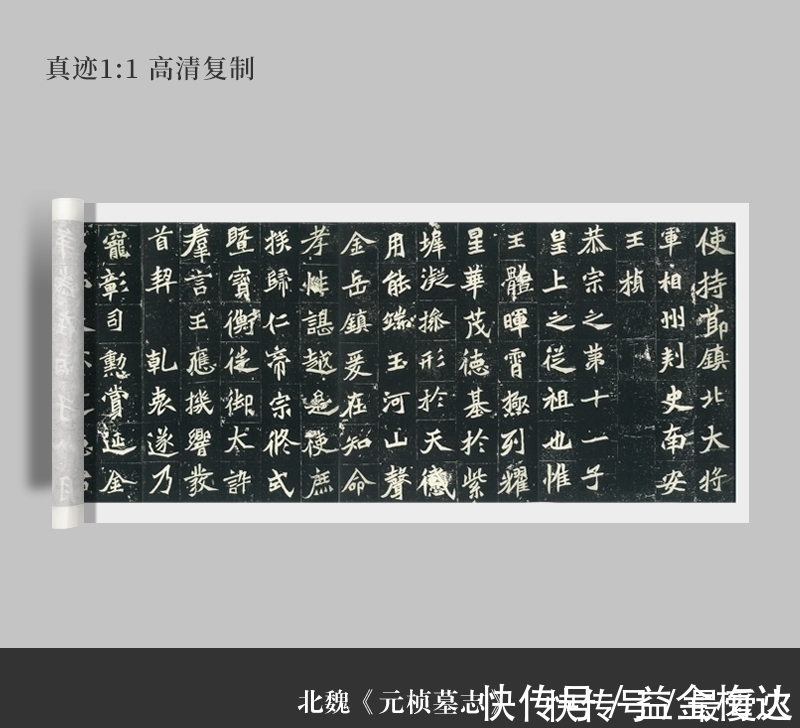 真迹1:1 高清复制
使持節鎮北大將
軍相州刾史南安
王楨
恭宗之第十一子
皇上之從祖也惟
王體暉霄極列耀
星華茂德基於紫
墀凝操形於天感
用能端玉河山聲
金岳鎮爰在知命
孝性諶越是使庶
族歸仁帝宗攸式
暨寶衡徙御大訊
羣言王應機響發
首契 乹衷遂乃
寵彰司勳賞延金
北魏《元桢墓志
快传号 / 益金梅达